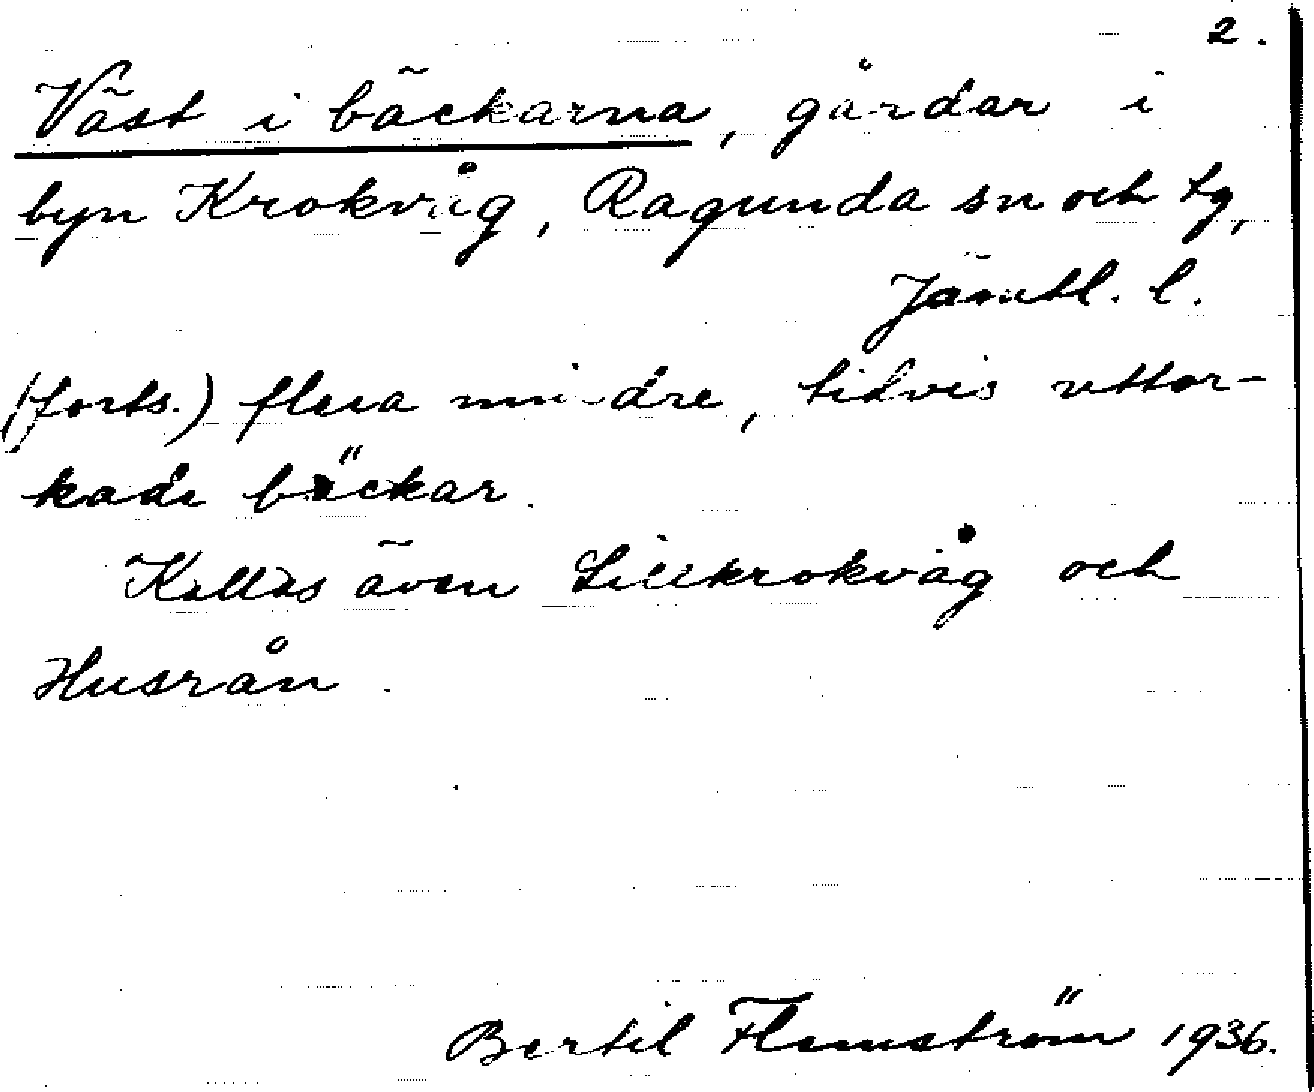 2.
Väst i bäckarna, gårdar i
byn Krokvåg, Ragunda sn och tg,
Jämtl. l.
(forts.) flera mindre, tidvis uttor-
kade bäckar.
Kallas även Lillkrokvåg och
Husrån.
Bertil Flemström 1936.